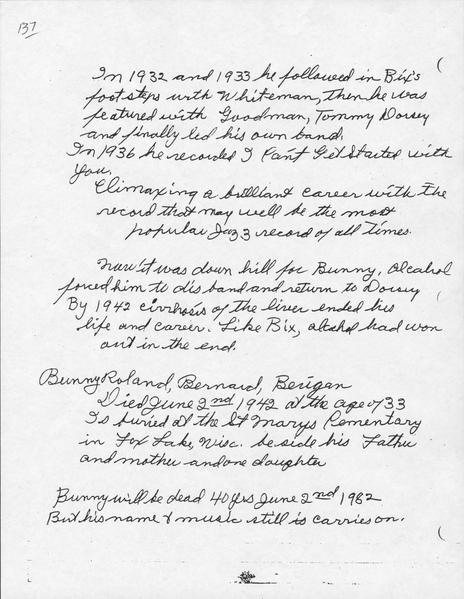 137
In 1932 and 1933 he followed in Bix's
foot steps with Whiteman, then he was
featured with Goodman, Tommy Dorsey
and finally led his own band.
In 1936 he recorded I Can't Get Started with
You.
Climaxing a brilliant career with the
record that may well be the most
popular Jazz record of all Times.
Now it was down hill for Bunny, Alcahol
forced him to disband and return to Dorsey
By 1942 cirrhosis of the liver ended his
life and career. Like Bix, alcohol had won
out in the end.
Bunny Roland, Bernard, Berigan
Died June 2nd 1942 at the age of 33
Is buried at the St Marys Cementary
in Fox Lake, Wisc. beside his Father
and mother and one daughter
Bunny will be dead 40 yrs June 2nd 1982
But his name & music still is carries on.